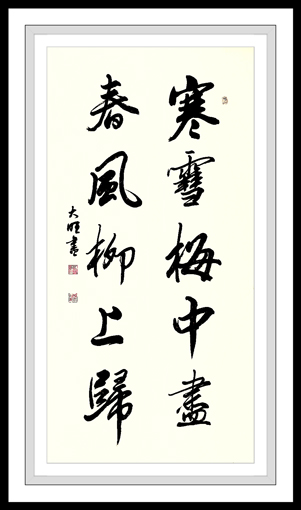 寒雪梅中盡
春風柳上歸
大旺書